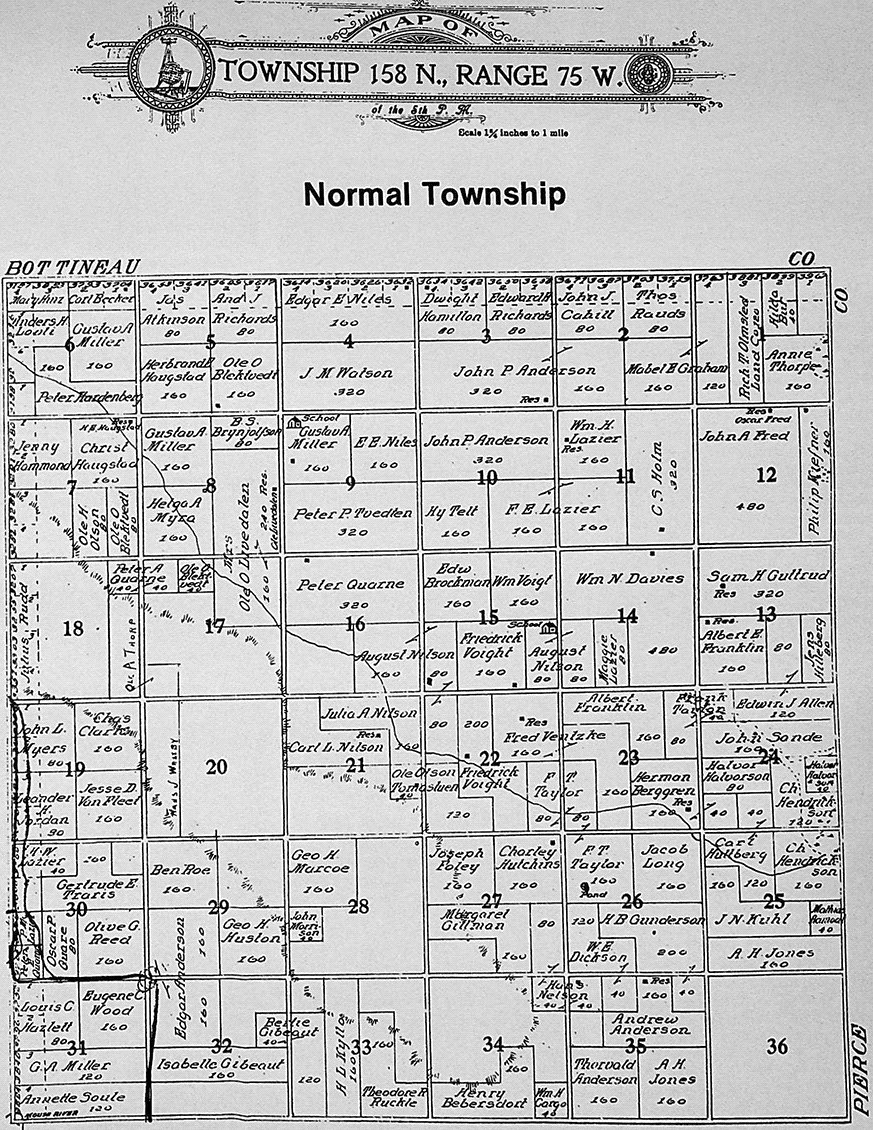 MAP OF
TOWNSHIP 158 N., RANGE 75 W.
of the 5th P. M.
Scale 1¾ inches to 1 mile
Normal Township
BOTTINEAU CO
CO
Mary Ann Carl Becker
Jas Atkinson 80
And J Richards 80
Edgar E Niles 160
Dwight Hamilton 80
Edward A Richards 80
John J. Cahill 80
Thos Rauds 80
Rich T. Olmsted Land Co 120
40
Anders H.
Gustav A Miller 160
6
160
Peter Hardenberg
5
Herbrand E Haugstad 160
Ole O Blektvedt 160
4
J. M Watson 320
3
John P Anderson 320 160
Res
2
Mabel E Graham 160 120
Annie Thorpe 160
Jenny Hammond
H.E. Haugstad Res
Christ Haugstad 160
7
Ole H Olson 80
Ole O Blektvedt 80
Gustav A. Miller 160
B.S. Brynjolfson 80
8
Helga A Myra 160
Mrs Ole O Livedalen 160
240 Res.
School
Gustav A. Miller 160
E E Niles 160
9
Peter P. Tvedten 320
John P. Anderson 320
10
Hy Telt 160
F. E. Lazier 160 160
Wm. H. Lazier Res. 160
11
C. S Holm 320
Res Oscar Fred
John A Fred
12
480
Philip Kiefner 160
Julius Rudd
18
Peter A Quarne 40 40
Ole O Blektvedt 40
17
Ole P. Thorp
Peter Quarne 320
16
August Nilson 160
Edw Brockman 160
Wm Voigt 160
15
School
Friedrick Voight 160
80
August Nilson 80 80
Wm N Davies
14
Maggie Lazier 80
480
Sam H Guttrud
Res 320
13
Res.
Albert E. Franklin 160
80
Jens Hilleberg 80
John L. Myers 80
Chas Clark 160
19
Leander H. Jordan 90
Jesse D. Van Fleet 160
Hans J Wassby
20
Julia A Nilson
Res.
Carl L. Nilson 160
21
Ole Olson 40
80 200
Res
Fred Ventzke 160
22
Friedrick Voight
120
F T Taylor 80 80
Albert Franklin
160 80
23
160
Herman Berggren Res 160
Frank Taylor 40
Edwin J Allen 120
John Sande 160
24
Halvor Halvorson 80
40 40
Halvor Halvorson 40
Ch Hendrickson 120
H.W. Lazier 40
160
Gertrude E. Travis
30
Oscar P. Quare 80
Olive G. Reed 160
Ben Roe 160
29
Edgar Anderson 160
Geo H. Huston 160
Geo H Marcoe 160
28
John Morrison 40
Joseph Foley 160
Charley Hutchins 160
27
Margaret Gillman 160
80
F. T. Taylor 160
Pond
Jacob Long 160
26
120
H B Gunderson 200
W. E Dickson
Carl Hallberg 160 120
Ch Hendrickson 160
25
J N Kuhl
40
A. H. Jones 160
Louis C Hazlett 80
Eugene C Wood 160
31
G. A Miller 120
Annette Soule 120
MOUSE RIVER
32
Bertie Gibeaut 40
Isabelle Gibeaut 160
120
H L Kyllo 160
33
160
Theodore R Ruckle
34
160
Henry Bebersdorf
Wm H Cargo 40
Hans Nelson 40 40
40
Res 160
40
Andrew Anderson
35
Thorvald Anderson 160
A H. Jones 160
36
PIERCE